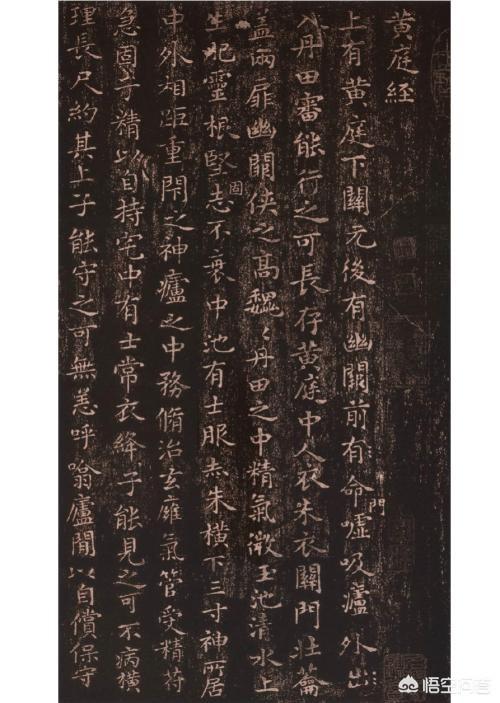 黄庭経
上有黄庭下關元後有幽關前有命門嘘吸廬外出
入丹田審能行之可長存黄庭中人衣朱衣關門壯籥
盖兩扉幽關侠之髙魏〻丹田之中精氣微玉池清水上
生肥靈根堅固志不衰中池有士服赤朱横下三寸神所居
中外相距重閇之神廬之中務脩治玄㢕氣管受精符
急固子精以自持宅中有士常衣絳子能見之可不病横
理長尺約其上子能守之可無恙呼噏廬間以自償保守
悟空问答